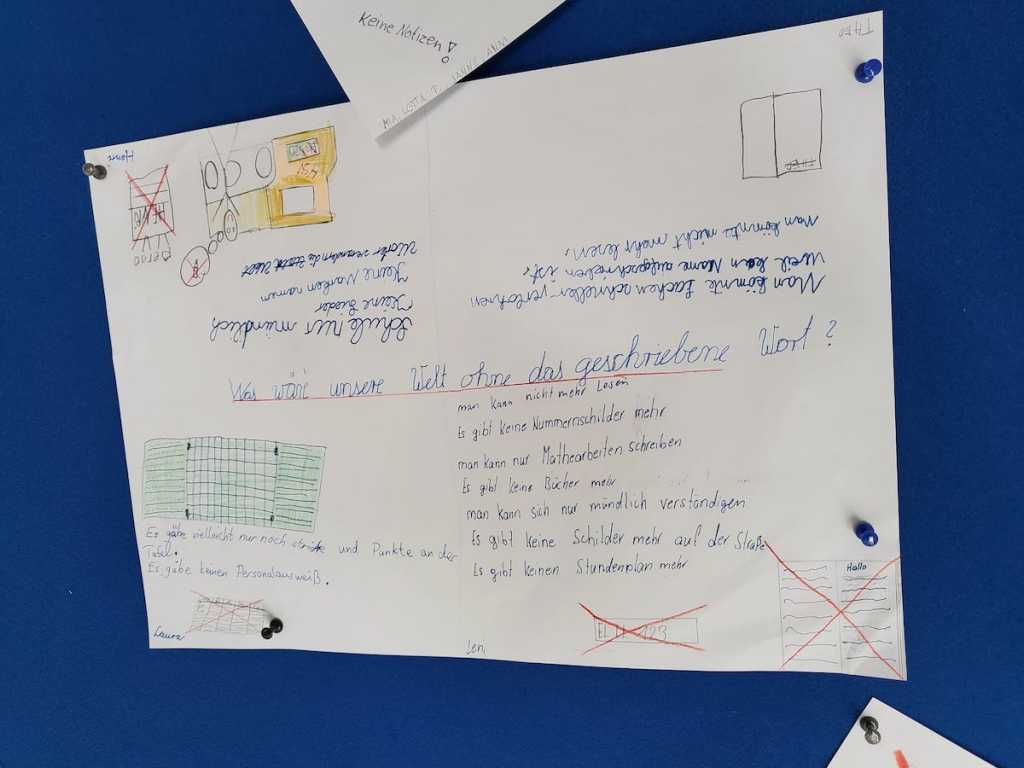 Keine Notizen!
MIA, LOTTA P.
THEO
THEO
Man könnte Sachen schneller verlohren
Weil kein Name aufgeschrieben ist.
Man könnte nicht mehr lesen.
Henri
HENRI
Perso
Schule nur mündlich
Keine Lieder
Keine Marken namen
Wörter
Was wäre unsere Welt ohne das geschriebene Wort?
man kann nicht mehr Lesen
Es gibt keine Nummernschilder mehr
man kann nur Mathearbeiten schreiben
Es gibt keine Bücher mehr
man kann sich nur mündlich verständigen
Es gibt keine Schilder mehr auf der Straße
Es gibt keinen Stundenplan mehr
Leni
EL 123
Hallo
Es gäbe vielleicht nur noch striche und Punkte an der
Tafel.
Es gäbe keinen Personalausweiß.
Laura